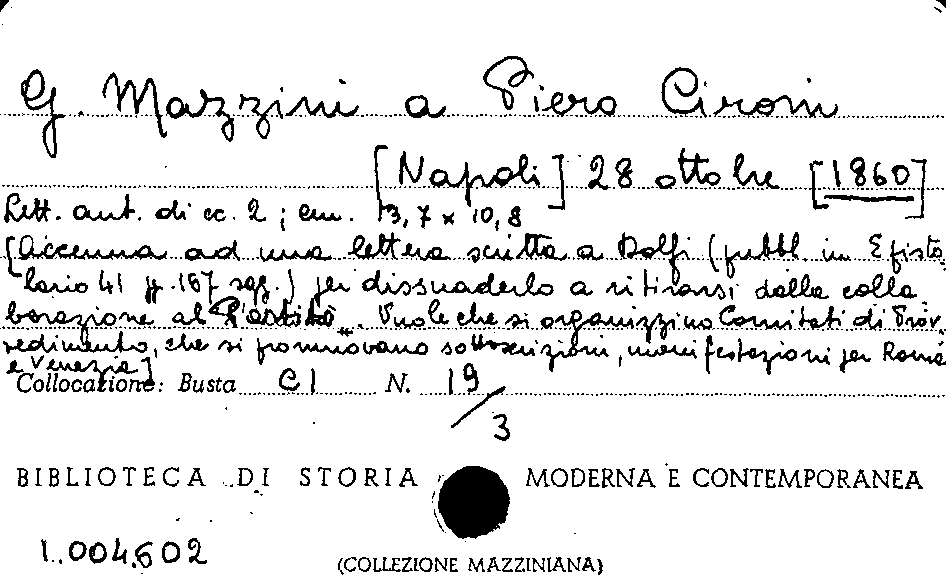 G. Mazzini a Piero Cironi
[Napoli] 28 ottobre [1860]
Lett. aut. di cc. 2; cm. 13,7 x 10,8
[Accenna ad una lettera scritta a Dolfi (pubbl. in Episto
lario 41 p. 167 sgg.) per dissuaderlo a ritirarsi dalla colla
borazione al Partito... Vuole che si organizzino Comitati di Prov
vedimento, che si promuovano sottoscrizioni, manifestazioni per Roma
e Venezia]
Collocazione: Busta C1 N. 19/3
BIBLIOTECA DI STORIA MODERNA E CONTEMPORANEA
1.004.602
(COLLEZIONE MAZZINIANA)